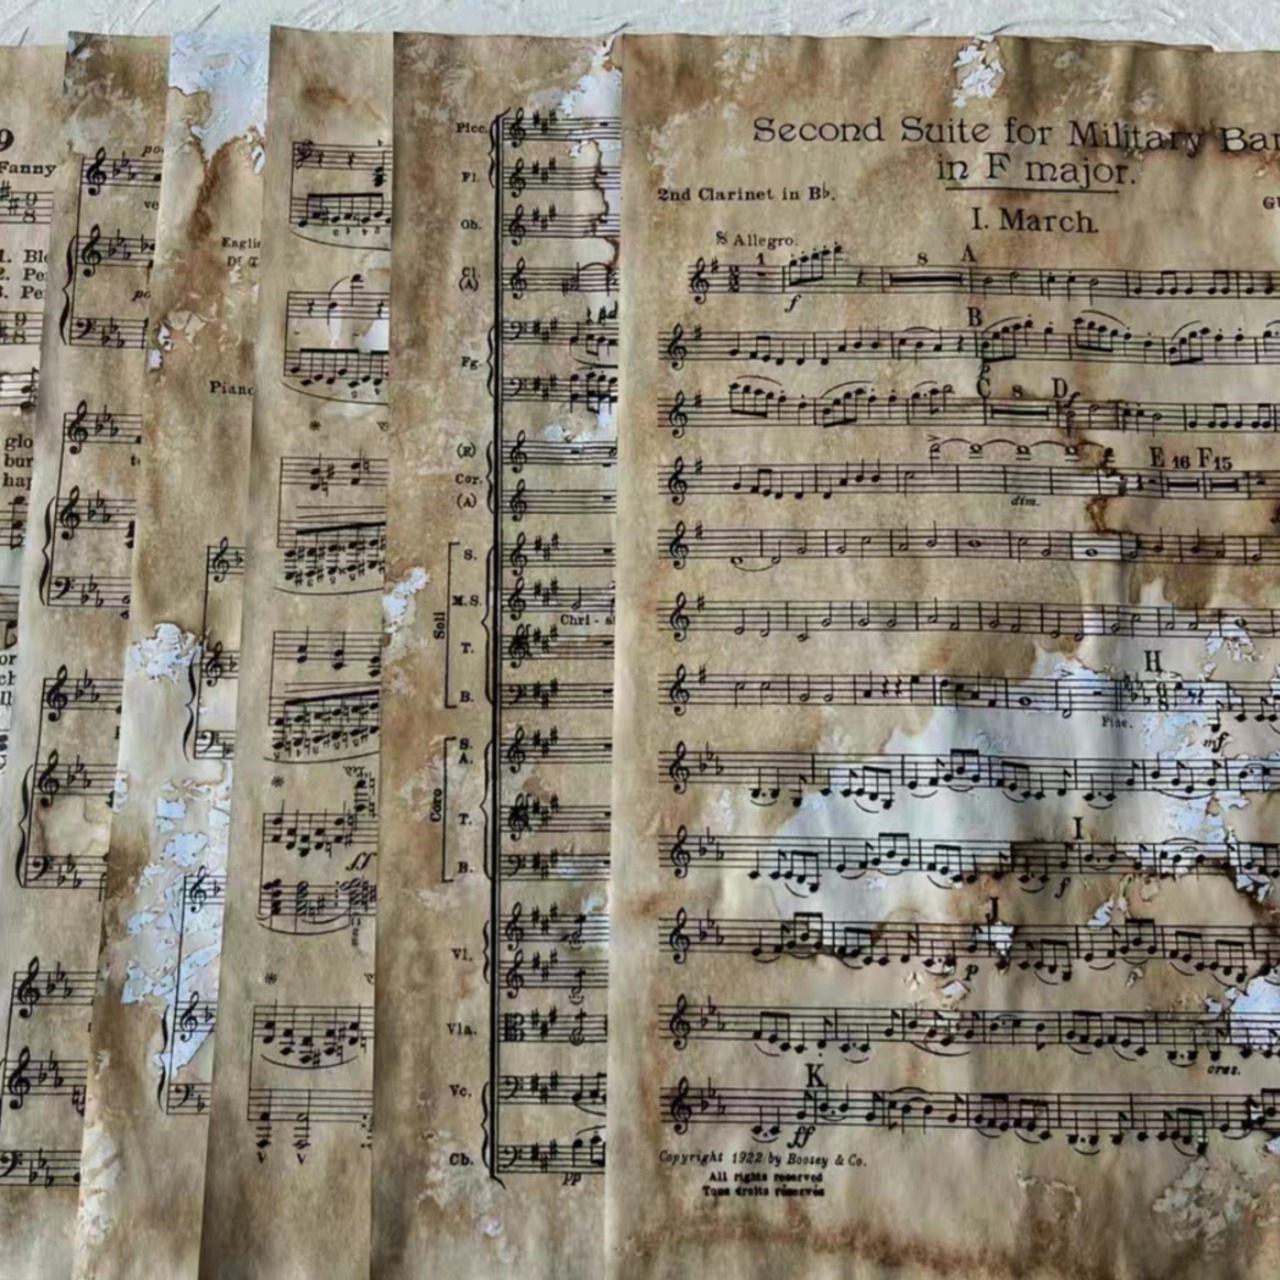 9
Fanny
9
8
1. Ble
2. Pe
3. Pe
9
8
glo
bur
hap
ve
Englis
Piano
ff
Picc.
Fl.
Ob.
Cl.
(A)
Fg.
(E)
Cor.
(A)
Soli
S.
M.S.
Chri - s
T.
B.
Coro
S.
A.
T.
B.
Vl.
Vla.
Vc.
Cb.
pp
Second Suite for Military Ban
in F major.
2nd Clarinet in B♭.
GU
I. March.
Allegro.
1
8
A
f
B
C 8 D
f
E 16 F 15
dim.
H
Fine.
mf
I
f
J
p
cres.
K
ff
Copyright 1922 by Boosey & Co.
All rights reserved
Tous droits réservés